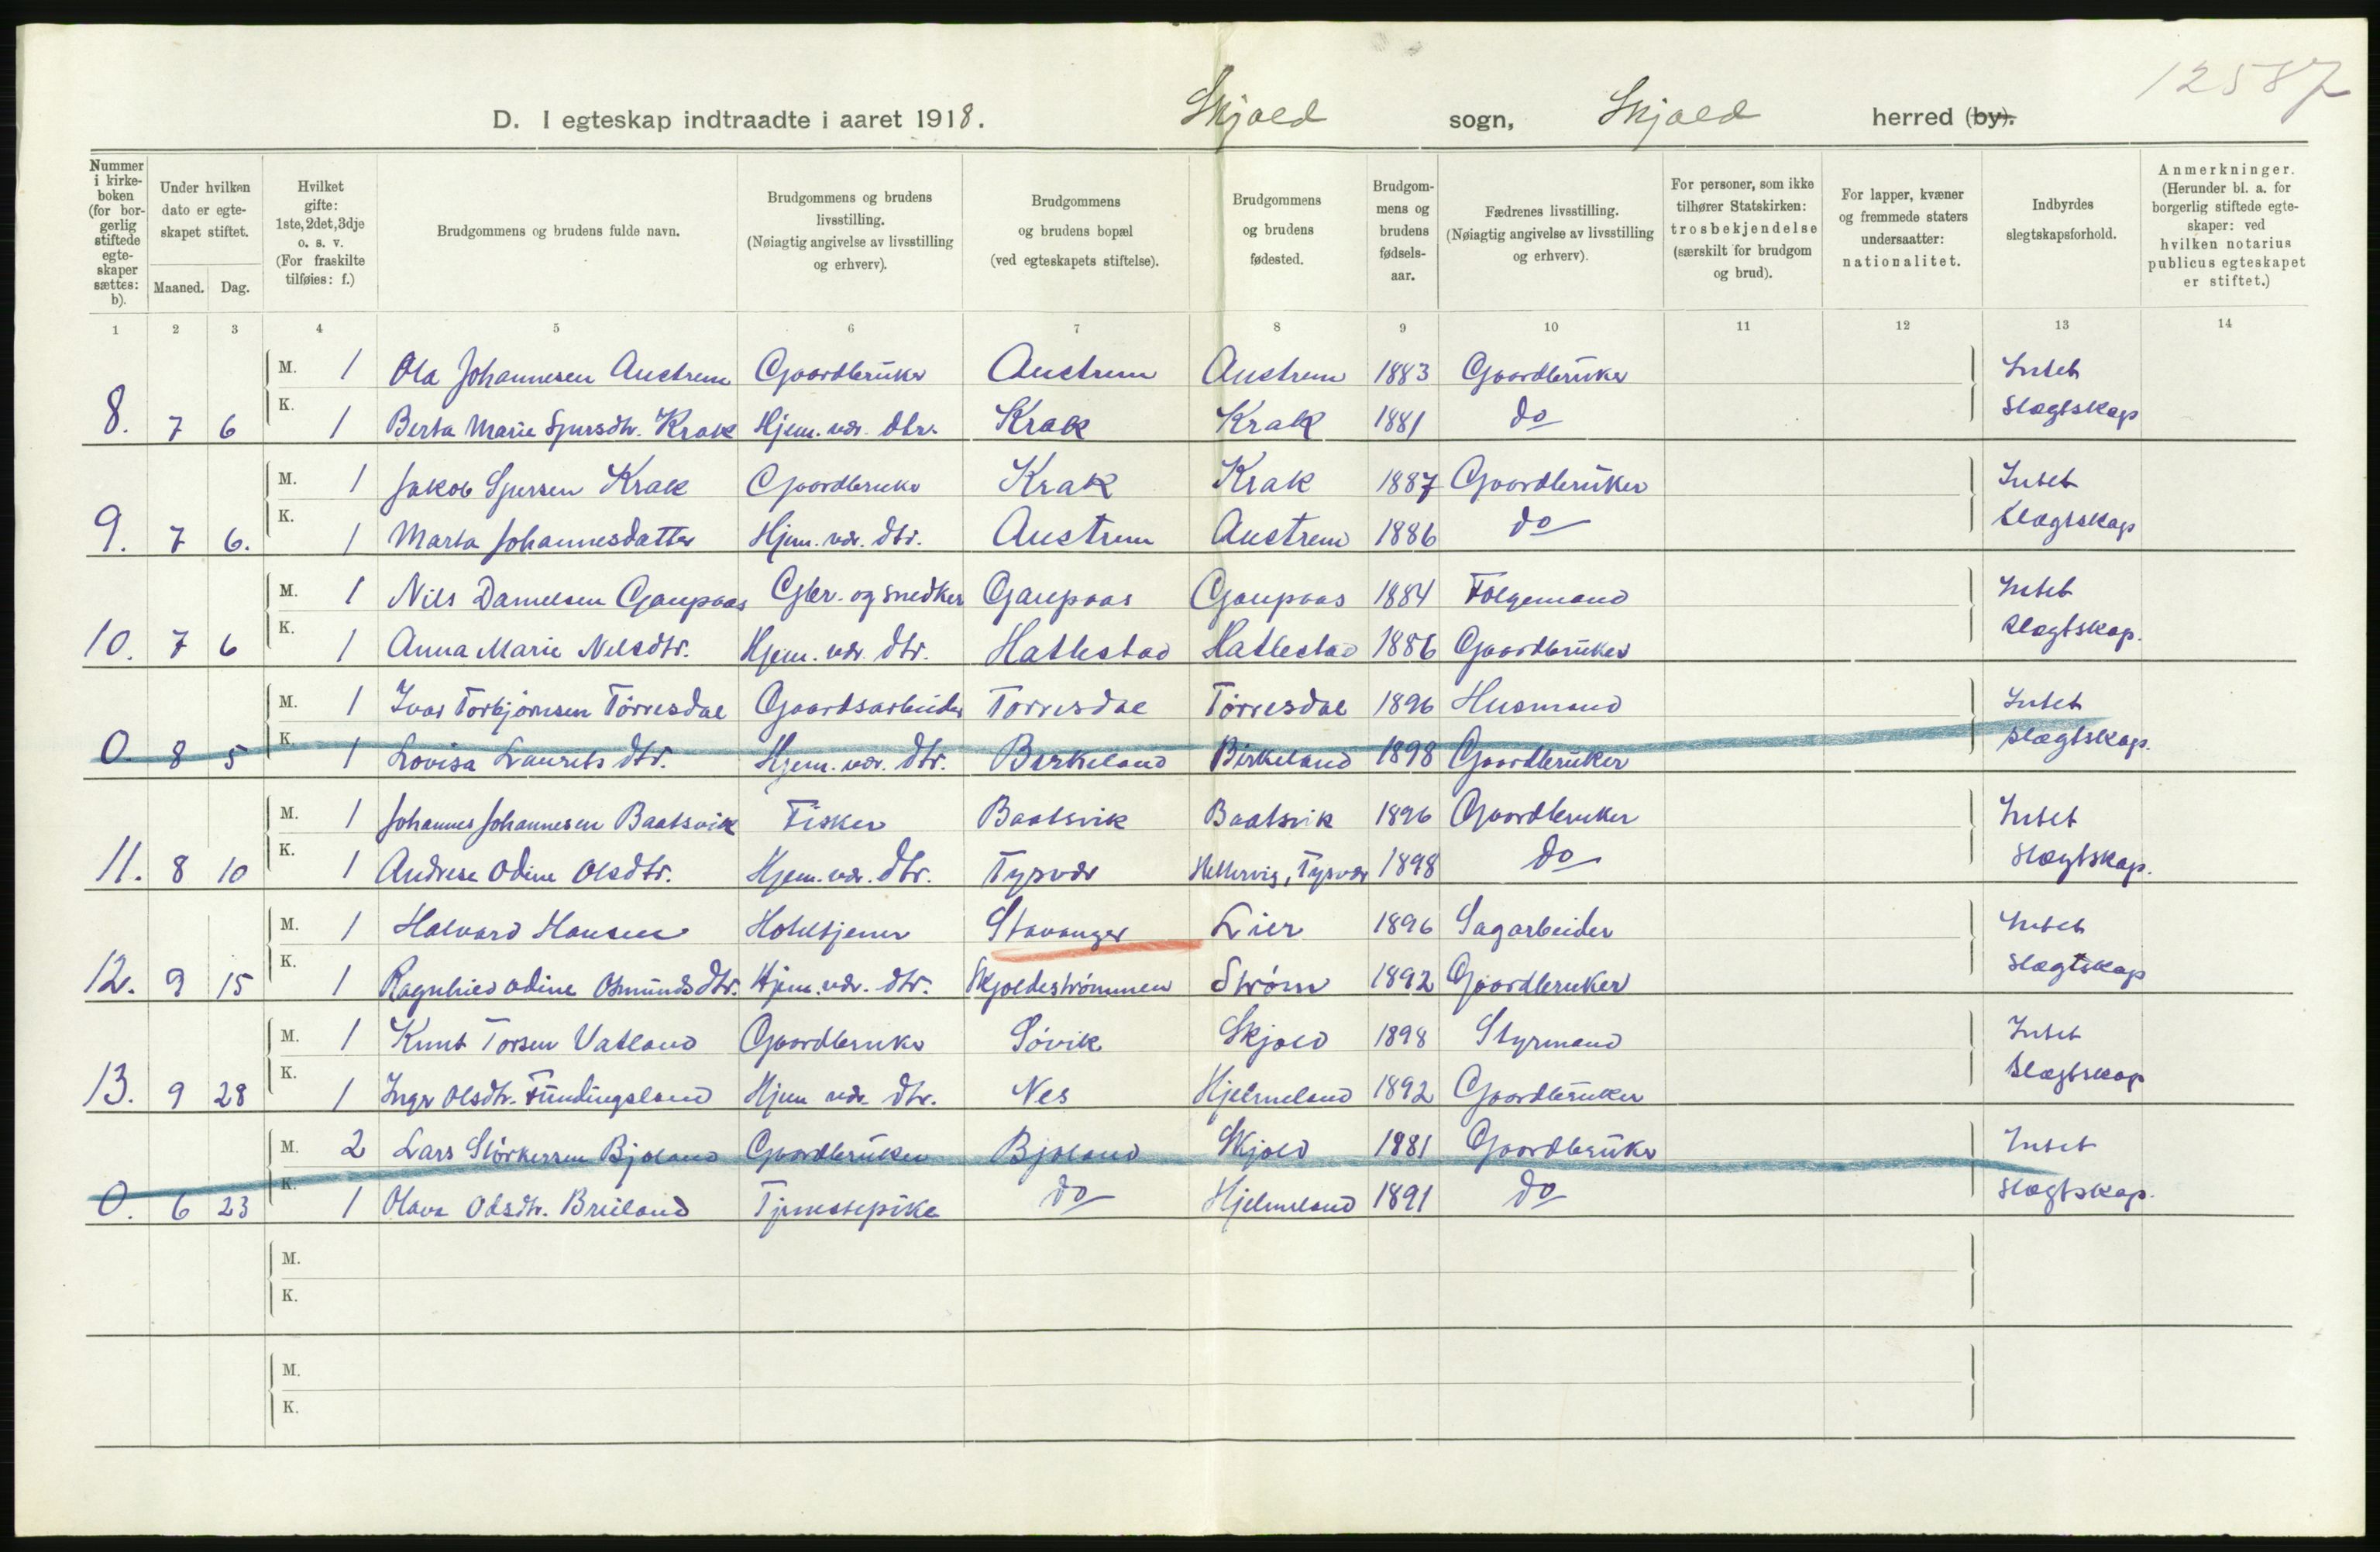 12587
D. I egteskap indtraadte i aaret 1918. Skjold sogn, Skjold herred (by).
Nummer i kirkeboken (for borgerlig stiftede egteskaper sættes: b).
Under hvilken dato er egteskapet stiftet.
Maaned. Dag.
Hvilket gifte: 1ste, 2det, 3dje o. s. v. (For fraskilte tilføies: f.)
Brudgommens og brudens fulde navn.
Brudgommens og brudens livsstilling. (Nøiagtig angivelse av livsstilling og erhverv).
Brudgommens og brudens bopæl (ved egteskapets stiftelse).
Brudgommens og brudens fødested.
Brudgommens og brudens fødselsaar.
Fædrenes livsstilling. (Nøiagtig angivelse av livsstilling og erhverv).
For personer, som ikke tilhører Statskirken: trosbekjendelse (særskilt for brudgom og brud).
For lapper, kvæner og fremmede staters undersaatter: nationalitet.
Indbyrdes slegtskapsforhold.
Anmerkninger. (Herunder bl. a. for borgerlig stiftede egteskaper: ved hvilken notarius publicus egteskapet er stiftet.)
1 2 3 4 5 6 7 8 9 10 11 12 13 14
M. 1 Ola Johannesen Austrem Gaardbruker Austrem Austrem 1883 Gaardbruker Intet
8. 7 6 K. 1 Berta Marie Sjursdtr. Krak Hjem. vær. dtr. Krak Krak 1881 do Slægtskap
M. 1 Jakob Sjursen Krak Gaardbruker Krak Krak 1887 Gaardbruker Intet
9. 7 6. K. 1 Marta Johannesdatter Hjem. vær. dtr. Austrem Austrem 1886 do Slægtskap
M. 1 Nils Danielsen Gaupaas Gbr. og snedker Gaupaas Gaupaas 1884 Følgemand Intet
10. 7 6 K. 1 Anna Marie Nilsdtr. Hjem. vær. dtr. Hatlestad Hatlestad 1886 Gaardbruker Slægtskap.
M. 1 Ivar Torbjørnsen Tørresdal Gaardsarbeider Tørresdal Tørresdal 1896 Husmand Intet
0. 8 5 K. 1 Lovisa Lauritsdtr. Hjem. vær. dtr. Birkeland Birkeland 1898 Gaardbruker Slægtskap.
M. 1 Johannes Johannesen Baatsvik Fisker Baatsvik Baatsvik 1896 Gaardbruker Intet
11. 8 10 K. 1 Andrea Odine Olsdtr. Hjem. vær. dtr. Tysvær Hettervig, Tysvær 1898 do Slægtskap.
M. 1 Halvard Hansen Hoteltjener Stavanger Lier 1896 Sagarbeider Intet
12. 9 15 K. 1 Ragnhild Odine Osmundsdtr. Hjem. vær. dtr. Skjoldestrømmen Strøm 1892 Gaardbruker Slægtskap
M. 1 Knut Torsen Vatland Gaardbruker Søvik Skjold 1898 Styrmand Intet
13. 9 28 K. 1 Inger Olsdtr. Fundingsland Hjem vær. dtr. Nes Hjelmeland 1892 Gaardbruker Slægtskap
M. 2 Lars Størkersen Bjoland Gaardbruker Bjoland Skjold 1881 Gaardbruker Intet
0. 6 23 K. 1 Olava Odsdtr. Breiland Tjenestepike do Hjelmeland 1891 do Slægtskap.
M.
K.
M.
K.